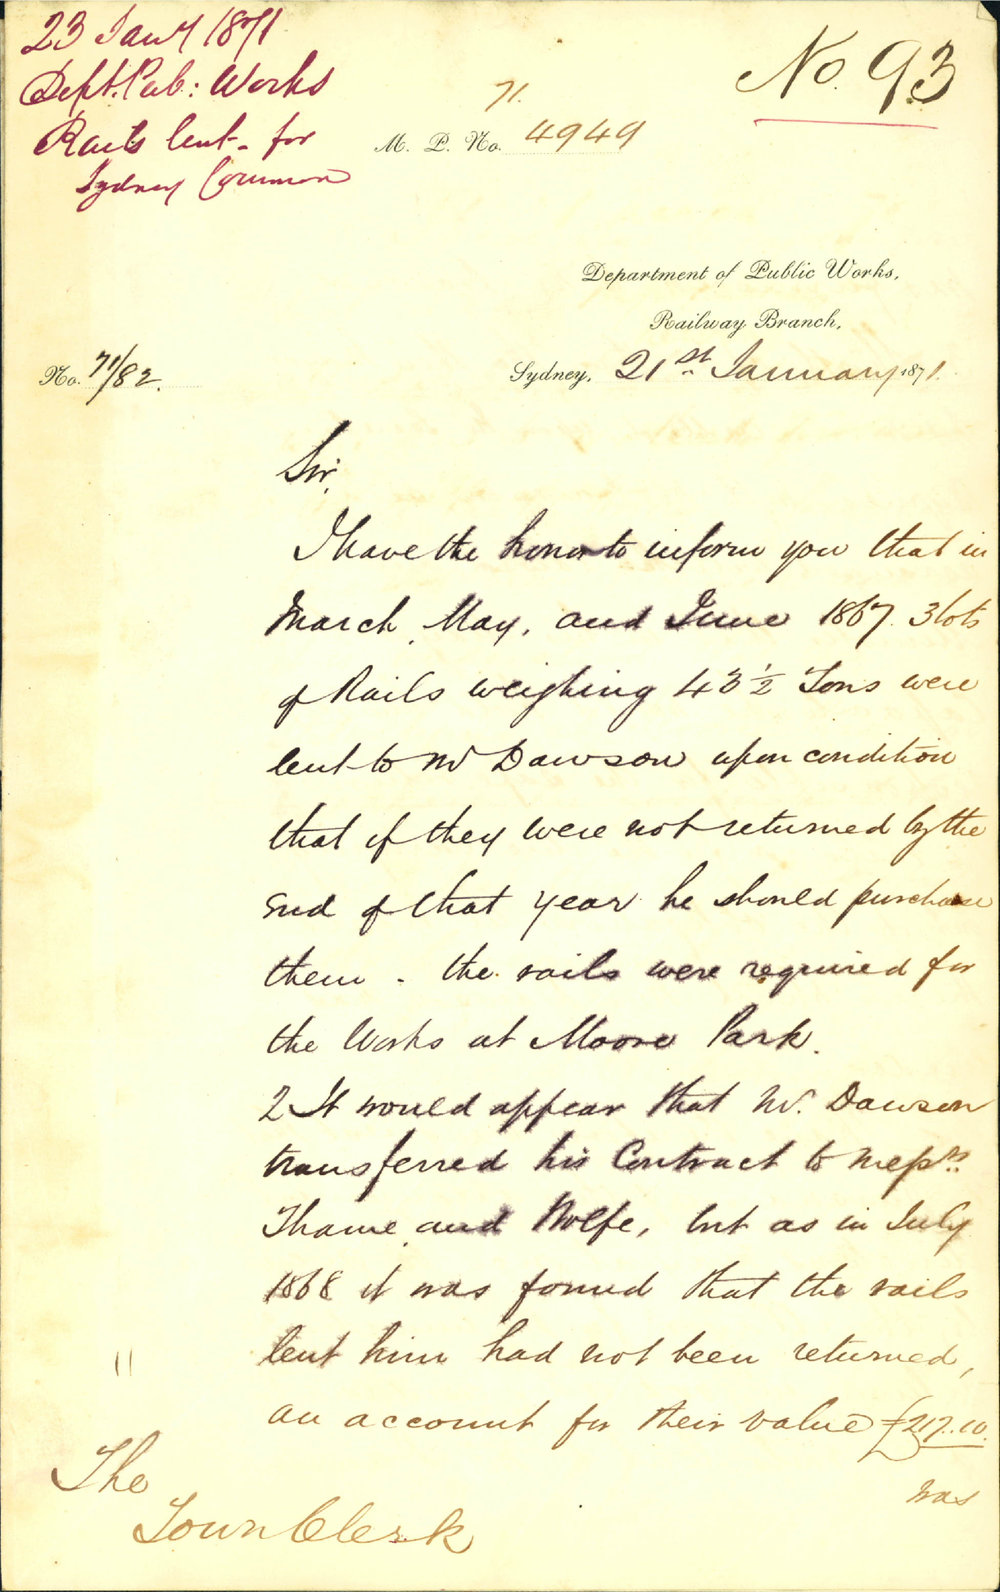 23 Jany 1871
Dept. Pub: Works
Rails lent - for
Sydney Common
No. 93
71.
M. P. No. 4949
Department of Public Works,
Railway Branch,
No. 71/82.
Sydney, 21st January 1871.
Sir,
I have the honor to inform you that in
March, May, and June 1867. 3 lots
of Rails weighing 43½ Tons were
lent to Mr Dawson upon condition
that if they were not returned by the
end of that year he should purchase
them - the rails were required for
the Works at Moore Park.
2 It would appear that Mr. Dawson
transferred his Contract to Messrs.
Thame and Wolfe, but as in July
1868 it was found that the rails
lent him had not been returned,
an account for their value £217.10.
was
The
Town Clerk